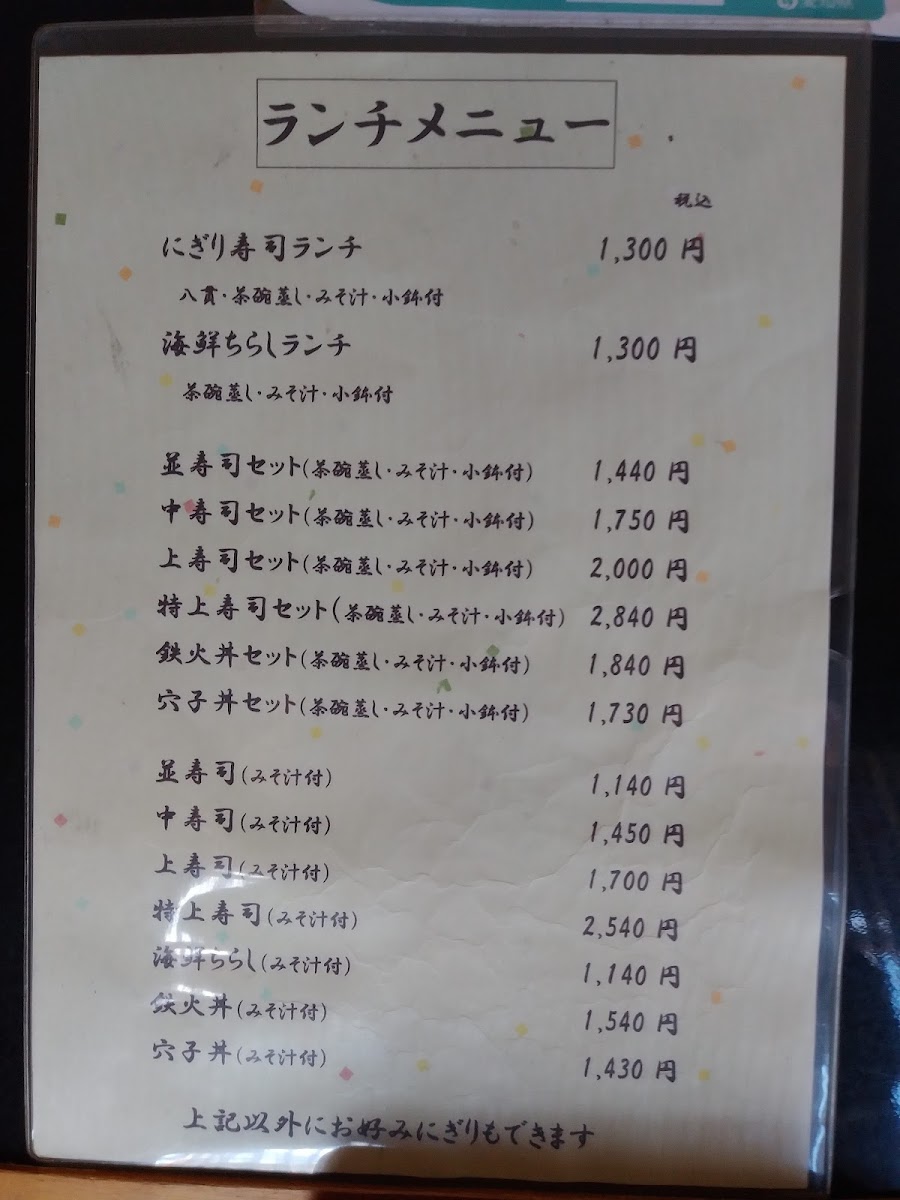 ランチメニュー
税込
にぎり寿司ランチ 1,300 円
八貫・茶碗蒸し・みそ汁・小鉢付
海鮮ちらしランチ 1,300 円
茶碗蒸し・みそ汁・小鉢付
並寿司セット(茶碗蒸し・みそ汁・小鉢付) 1,440 円
中寿司セット(茶碗蒸し・みそ汁・小鉢付) 1,750 円
上寿司セット(茶碗蒸し・みそ汁・小鉢付) 2,000 円
特上寿司セット(茶碗蒸し・みそ汁・小鉢付) 2,840 円
鉄火丼セット(茶碗蒸し・みそ汁・小鉢付) 1,840 円
穴子丼セット(茶碗蒸し・みそ汁・小鉢付) 1,730 円
並寿司(みそ汁付) 1,140 円
中寿司(みそ汁付) 1,450 円
上寿司(みそ汁付) 1,700 円
特上寿司(みそ汁付) 2,540 円
海鮮ちらし(みそ汁付) 1,140 円
鉄火丼(みそ汁付) 1,540 円
穴子丼(みそ汁付) 1,430 円
上記以外にお好みにぎりもできます